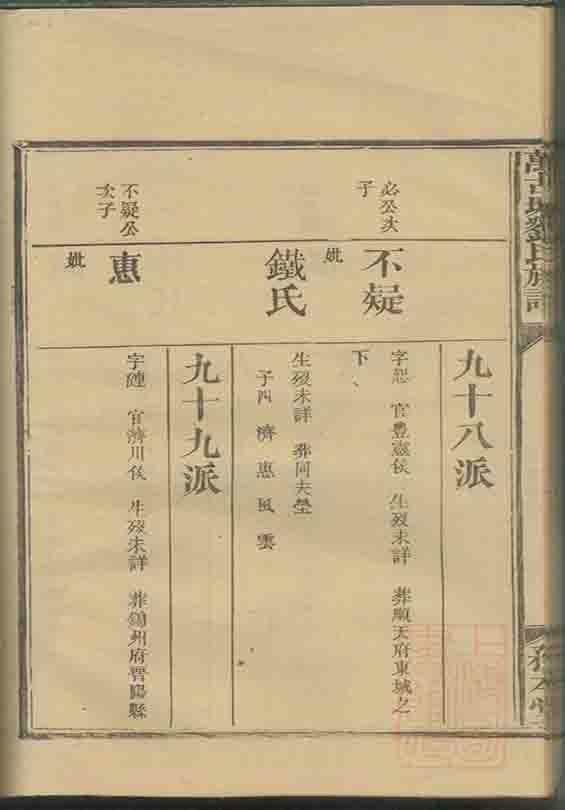 九十八派
必公次
子
不疑
妣
字恕 官豊靈侯 生歿未詳 葬順天府東城之
下
鐵氏
生歿未詳 葬同夫塋
子四 濟 惠 風 雲
九十九派
不疑公
次子
惠
妣
字漣 官濟川侯 生歿未詳 葬 州府晉陽縣